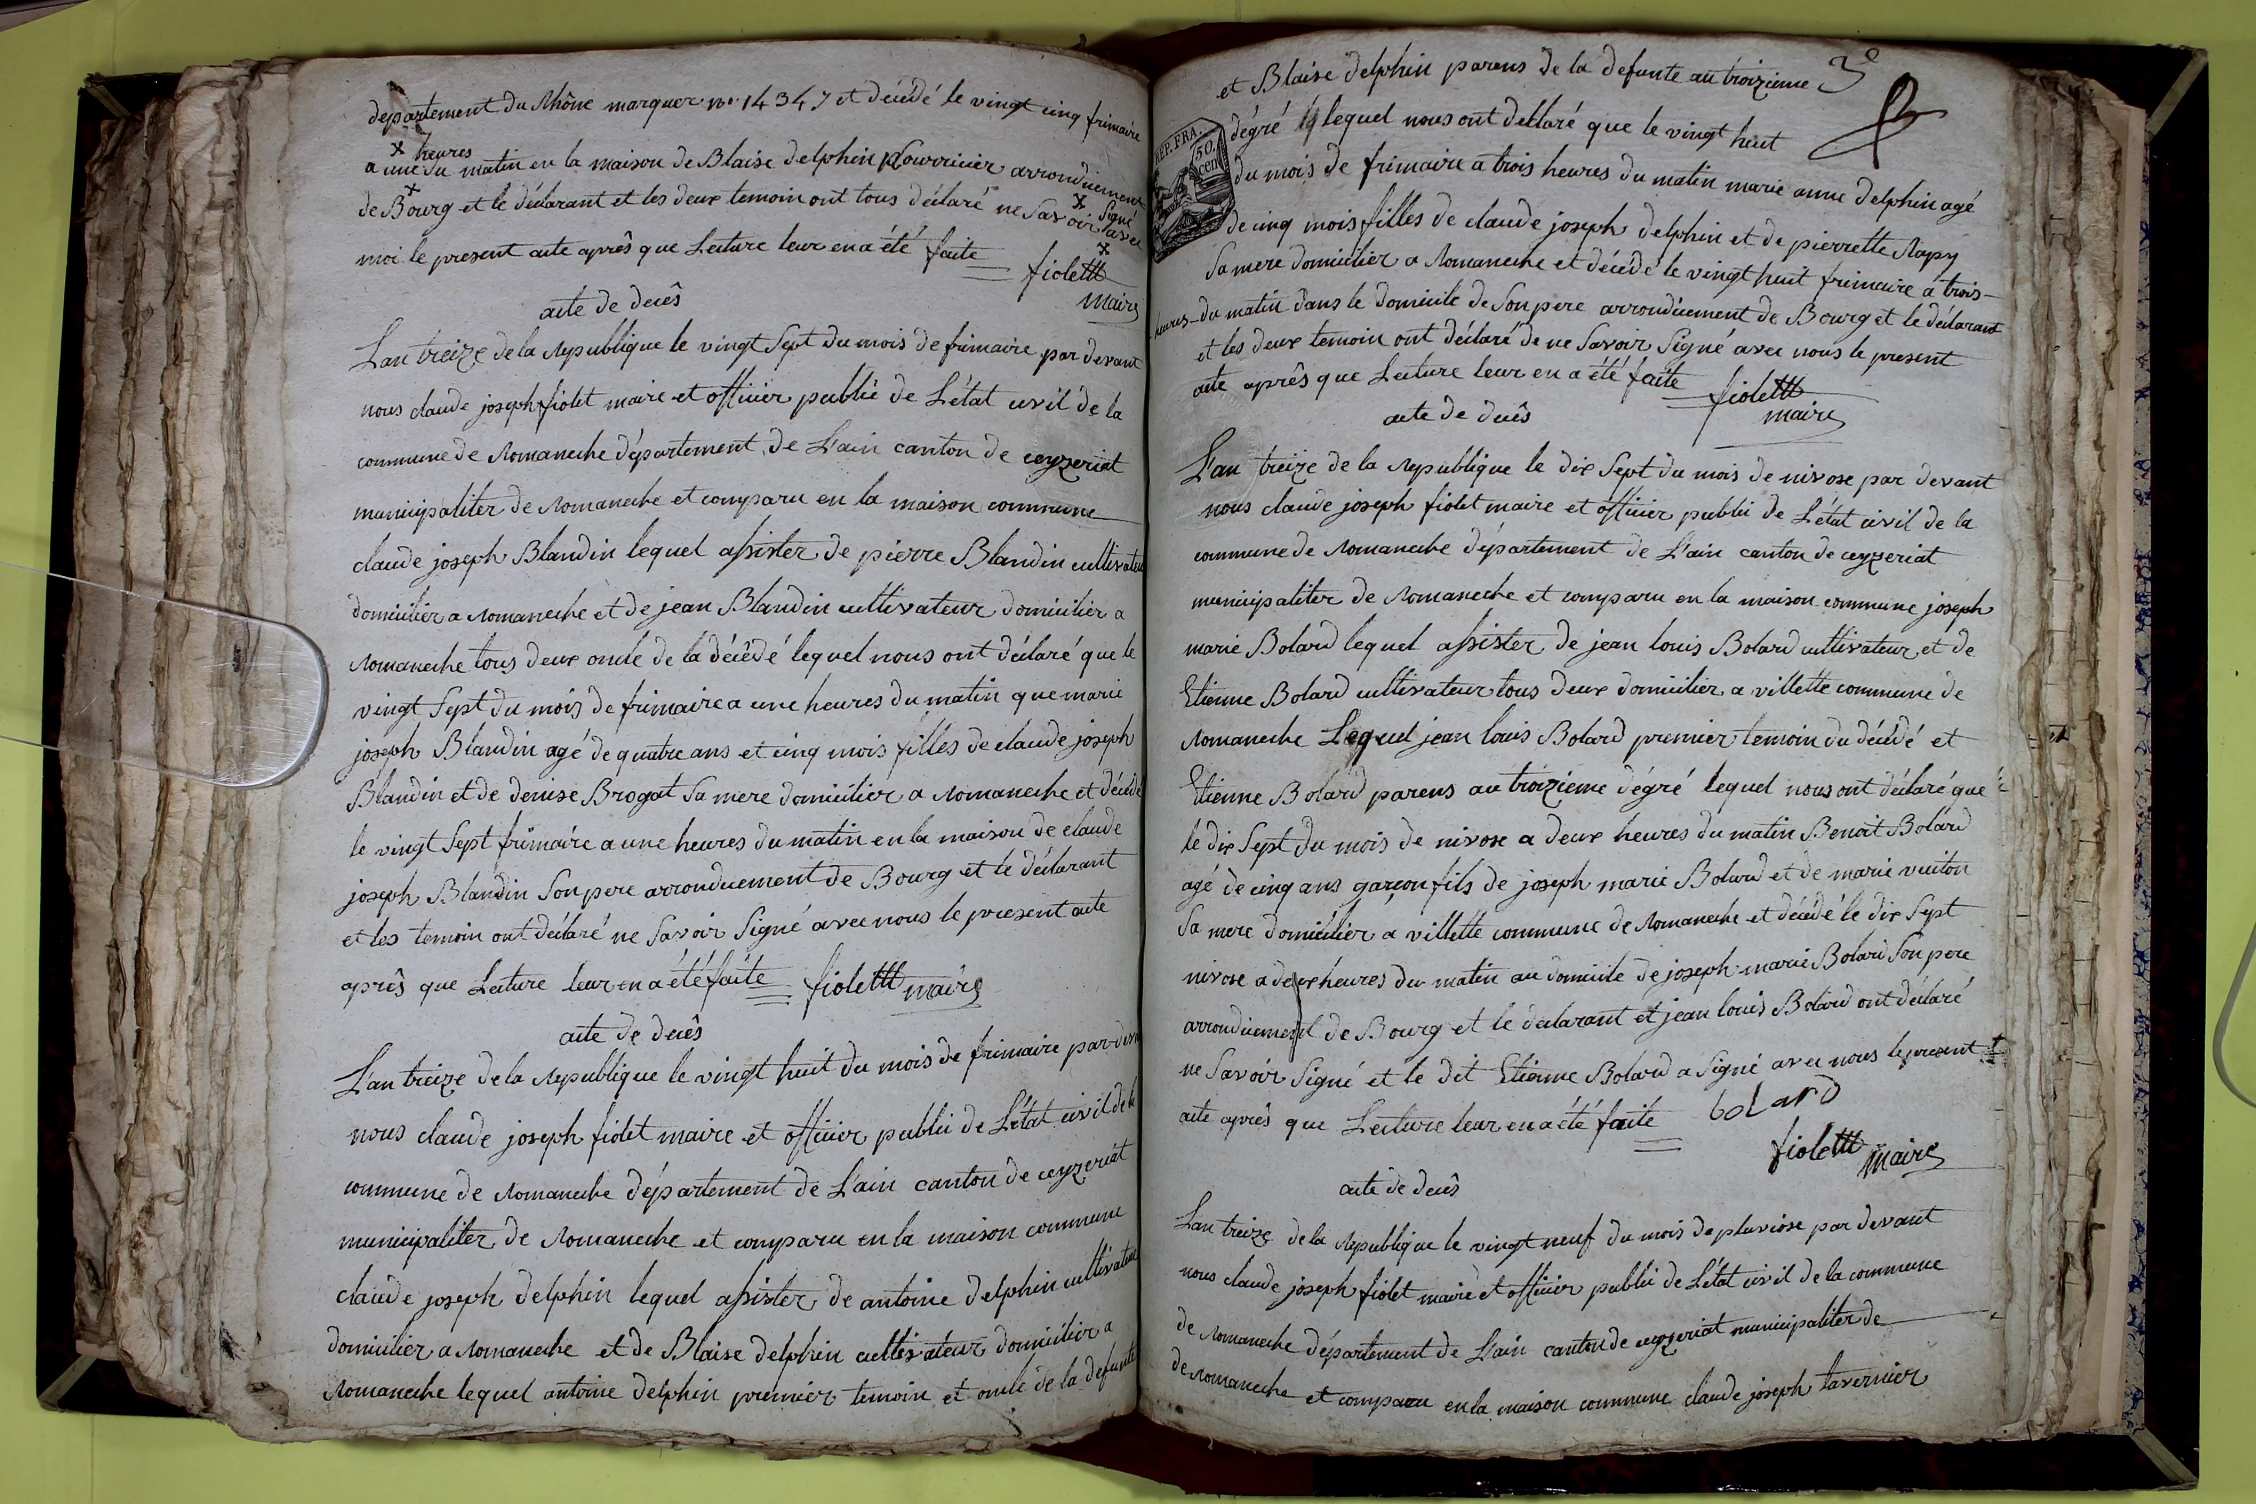 departement du Rhône marquer no. 14347 et décédé le vingt cinq frimaire
x heures
a une du matin en la maison de Blaise delphin Nourricier arrondicement
de Bourg et le déclarant et les deux temoin ont tous déclaré ne Savoir Signé avec
moi le present acte après que Lecture leur en a été faite fiolet
maire
acte de decês
L'an treize de la republique le vingt Sept du mois de frimaire par devant
nous claude joseph fiolet maire et officier public de L'état civil de la
commune de Romaneche département de L'ain canton de ceyzeriat
municipaliter de Romaneche et comparu en la maison commune
claude joseph Blandin lequel assister de pierre Blandin cultivateur
domicilier a Romaneche et de jean Blandin cultivateur domicilier a
Romaneche tous deux oncle de la décédé lequel nous ont déclaré que le
vingt Sept du mois de frimaire a une heures du matin que marie
joseph Blandin agé de quatre ans et cinq mois filles de claude joseph
Blandin et de denise Brogat Sa mere domicilier a Romaneche et décédé
le vingt Sept frimaire a une heures du matin en la maison de claude
joseph Blandin Son pere arrondicement de Bourg et le déclarant
et les temoin ont déclaré ne Savoir Signé avec nous le present acte
après que Lecture leur en a été faite fiolet maire
acte de decês
L'an treize de la republique le vingt huit du mois de frimaire par devant
nous claude joseph fiolet maire et officier public de L'état civil de la
commune de Romaneche département de L'ain canton de ceyzeriat
municipaliter de Romaneche et comparu en la maison commune
claude joseph delphin lequel assister de antoine delphin cultivateur
domicilier a Romaneche et de Blaise delphin cultivateur domicilier a
Romaneche lequel antoine delphin premier temoin et oncle de la defunte
et Blaise delphin parens de la defunte au troizieme
3e
dégré lequel nous ont déclaré que le vingt huit
REP. FRA.
50
cent
du mois de frimaire a trois heures du matin marie anne delphin agé
de cinq mois filles de claude joseph delphin et de pierrette Rapy
Sa mere domicilier a Romaneche et décédé le vingt huit frimaire a trois
heures du matin dans le domicile de Son pere arrondicement de Bourg et le déclarant
et les deux temoin ont déclaré de ne Savoir Signé avec nous le present
acte après que Lecture leur en a été faite fiolet
maire
acte de decês
L'an treize de la republique le dix Sept du mois de nivose par devant
nous claude joseph fiolet maire et officier public de L'état civil de la
commune de Romaneche département de L'ain canton de ceyzeriat
municipaliter de Romaneche et comparu en la maison commune joseph
marie Bolard lequel assister de jean louis Bolard cultivateur et de
Etienne Bolard cultivateur tous deux domicilier a villette commune de
Romaneche Lequel jean louis Bolard premier temoin du décédé et
Etienne Bolard parens au troizieme dégré lequel nous ont déclaré que
le dix Sept du mois de nivose a deux heures du matin Benoit Bolard
agé de cinq ans garçon fils de joseph marie Bolard et de marie vuiton
Sa mere domicilier a villette commune de Romaneche et décédé le dix Sept
nivose a deux heures du matin au domicile de joseph marie Bolard Son pere
arrondicement de Bourg et le declarant et jean louis Bolard ont déclaré
ne Savoir Signé et le dit Etienne Bolard a Signé avec nous le present
acte après que Lecture leur en a été faite bolard
fiolet maire
acte de decês
L'an treize de la republique le vingt neuf du mois de pluviose par devant
nous claude joseph fiolet maire et officier public de L'état civil de la commune
de Romaneche département de L'ain canton de ceyzeriat municipaliter de
de Romaneche et comparu en la maison commune claude joseph tavernier